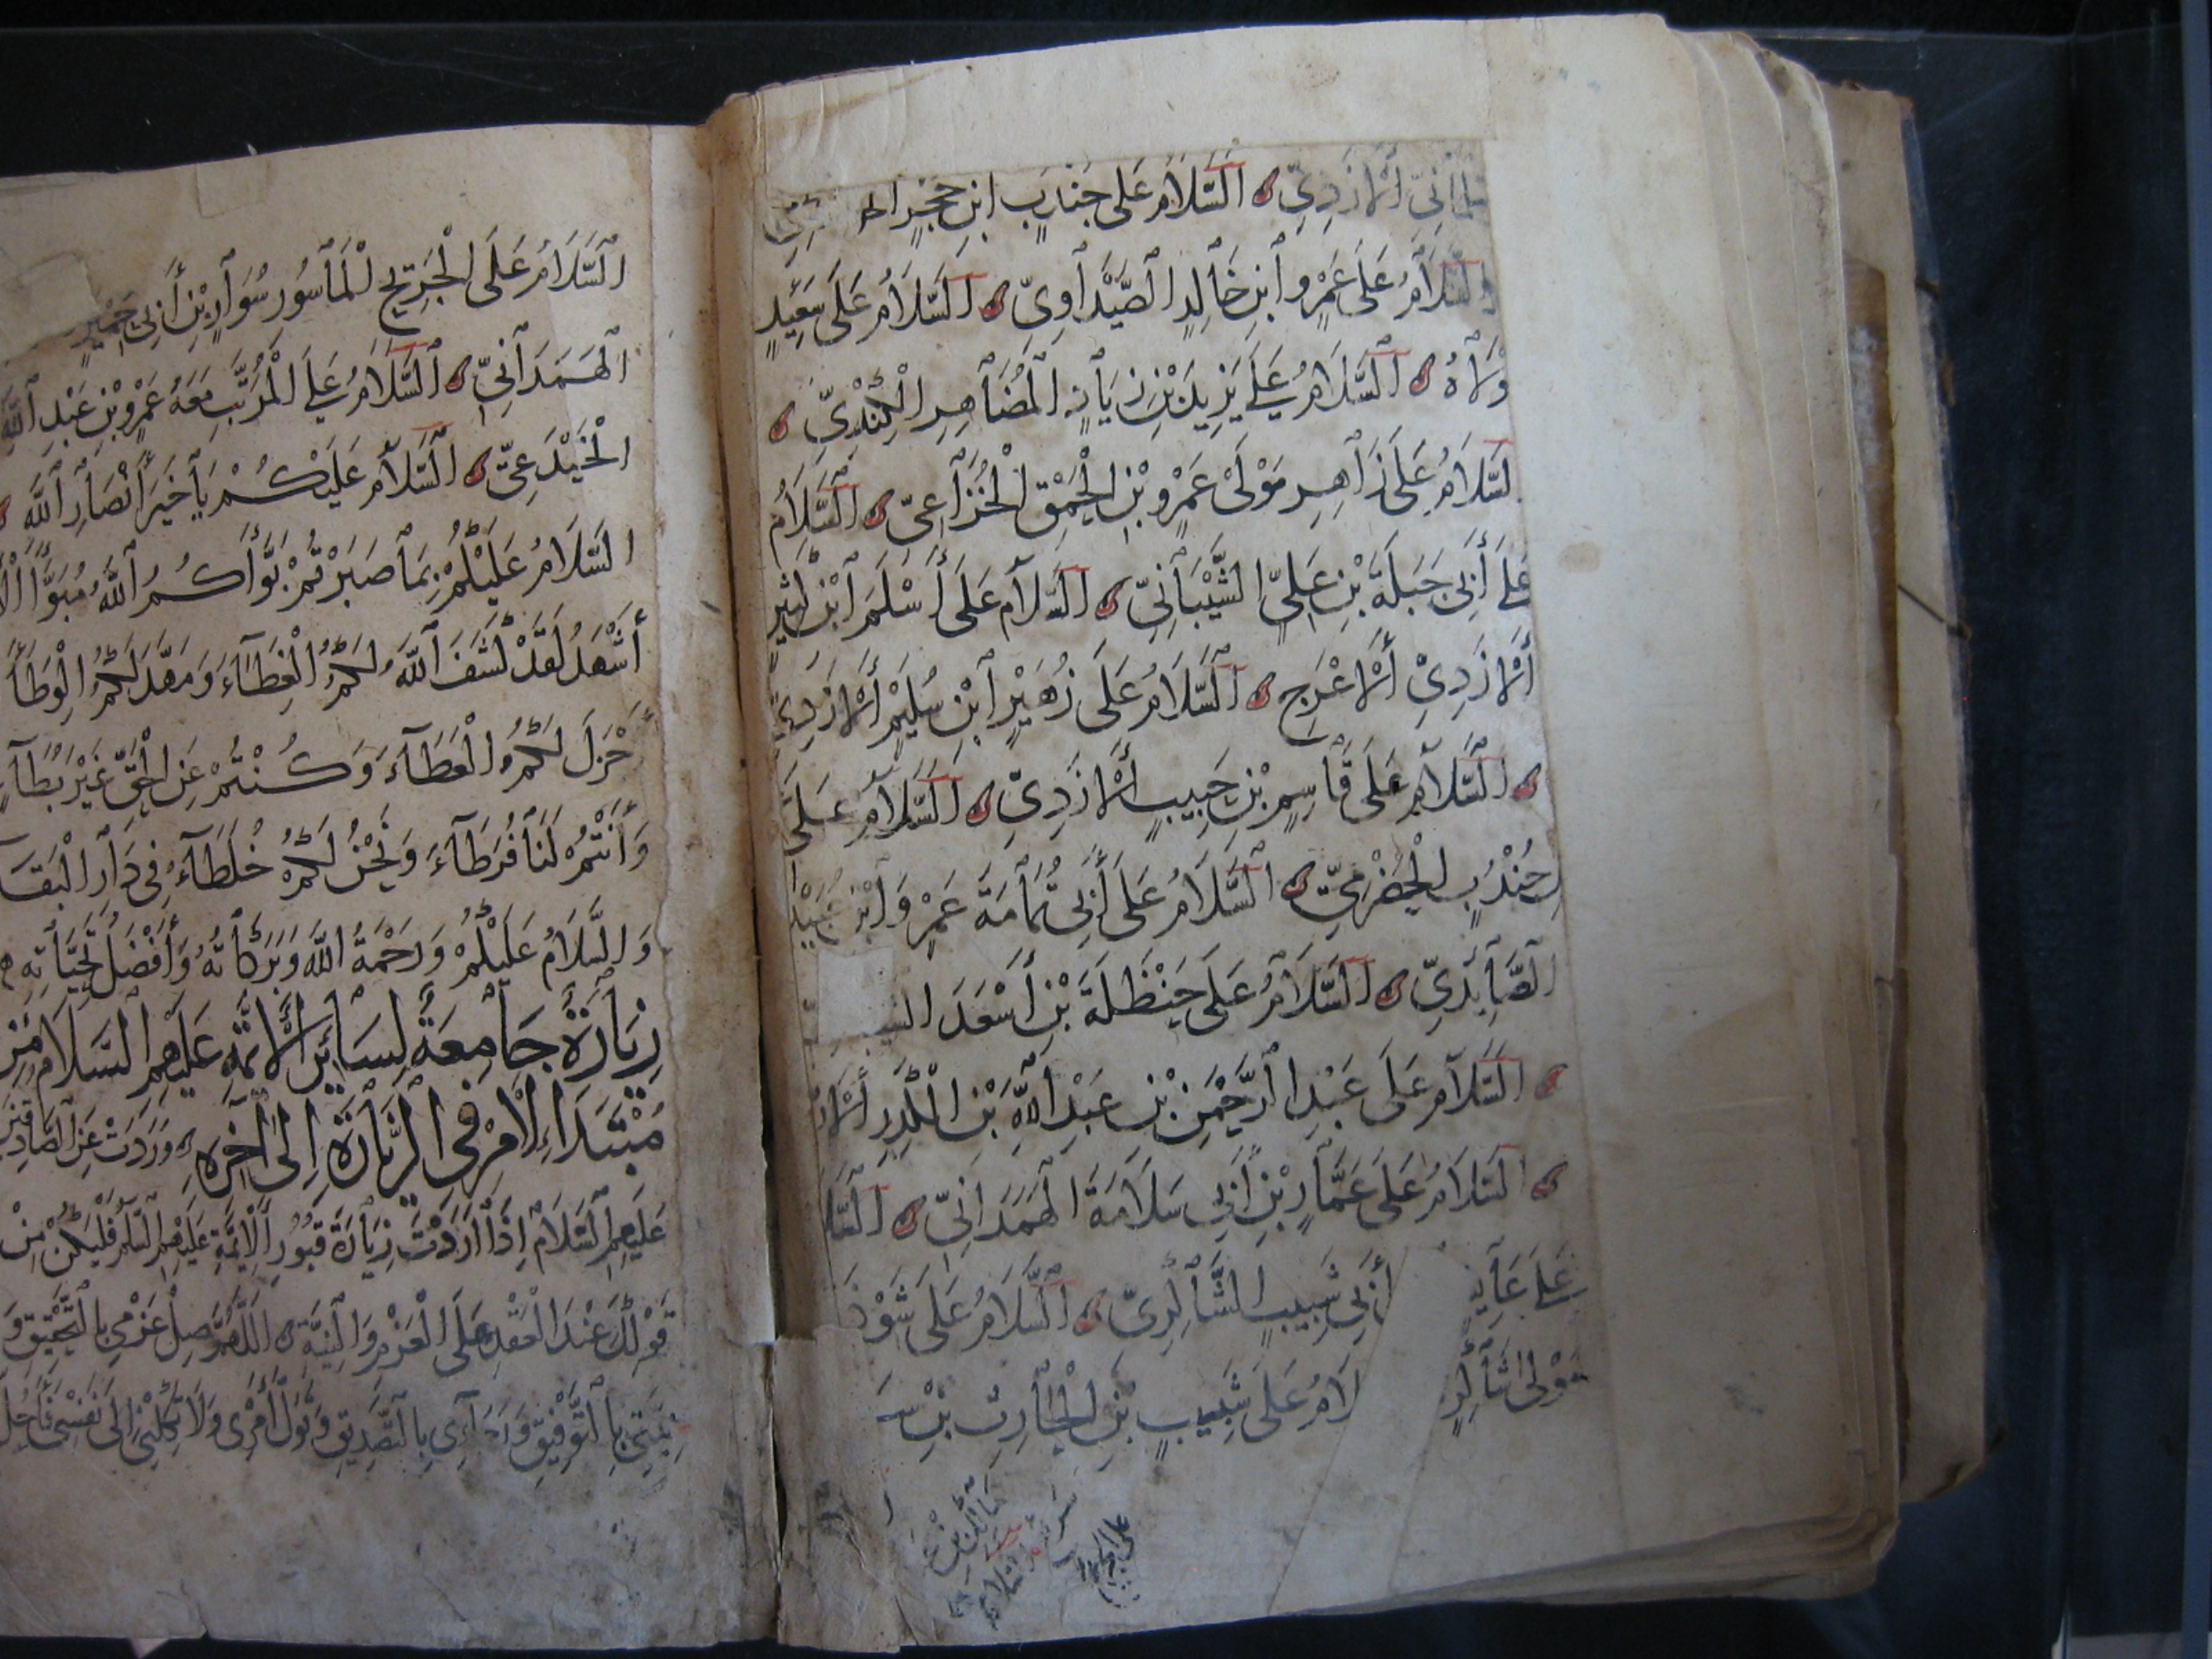 الأزدي السلام على جنارب ابن حجر
السلام على عمرو ابن خالد الصيداوي السلام على سعيد
ولاه السلام على يزيد بن زياد المضاهر الكندي
السلام على زاهر مولى عمرو بن الحمق الخزاعي السلام
على أبي جبلة بن علي الشيباني السلام على أسلم ابن كثير
الأزدي الأعرج السلام على زهير ابن سليم الأزدي
السلام على قاسم بن حبيب الأزدي السلام على
جندب الحضرمي السلام على أبي ثمامة عمر وابن عبيد
الصايدي السلام على حنظلة بن أسعد
السلام على عبد الرحمن بن عبد الله بن الكدر
السلام على عمار بن أبي سلامة الهمداني السلا
على عابد أبي شبيب الشاكري السلام على شوذ
مولى شاكر لام على شبيب بن الحارث بن
السلام على الجريح المأسور سوار بن أبي حمير
الهمداني السلام على المرتب معه عمرو بن عبد الله
الخيدعي السلام عليكم يا خير أنصار الله
السلام عليكم بما صبرتم بوأكم الله مبوأ
أشهد لقد كشف الله لكم الغطاء ومهد لكم الوطأ
جزل لكم العطاء وكنتم عن الحق غير بطاء
وأنتم لنا فرطاء ونحن لكم خلطاء في دار البقا
والسلام عليكم ورحمة الله وبركاته وأفضل تحياته
زيارة جامعة لسائر الأئمة عليهم السلام من
مبتداء الأمر في الزيارة إلى آخره وردت عن الصادقين
عليهم السلام إذا أردت زيارة قبور الأئمة عليهم السلم فليكن من
قولك عند العقد على العزم والنية اللهم صل عزمي بالتحقيق و
نيتي بالتوفيق ورجاءي بالتصديق وتول أمري ولا تكلني إلى نفسي فأحل